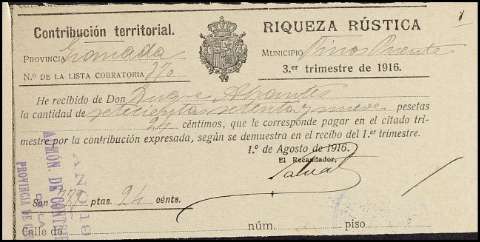 Contribución territorial.
RIQUEZA RÚSTICA
PROVINCIA Granada
MUNICIPIO Pinos Puente
N.º DE LA LISTA COBRATORIA 270
3.er trimestre de 1916.
He recibido de Don Duque Abrantes
la cantidad de setecientas setenta y nueve pesetas
24 céntimos, que le corresponde pagar en el citado tri-
mestre por la contribución expresada, según se demuestra en el recibo del 1.er trimestre.
1.º de Agosto de 1916.
El Recaudador,
Son 779 ptas. 24 cénts.
Calle de núm. piso
ADMON. DE CONTRI
PROVINCIA DE